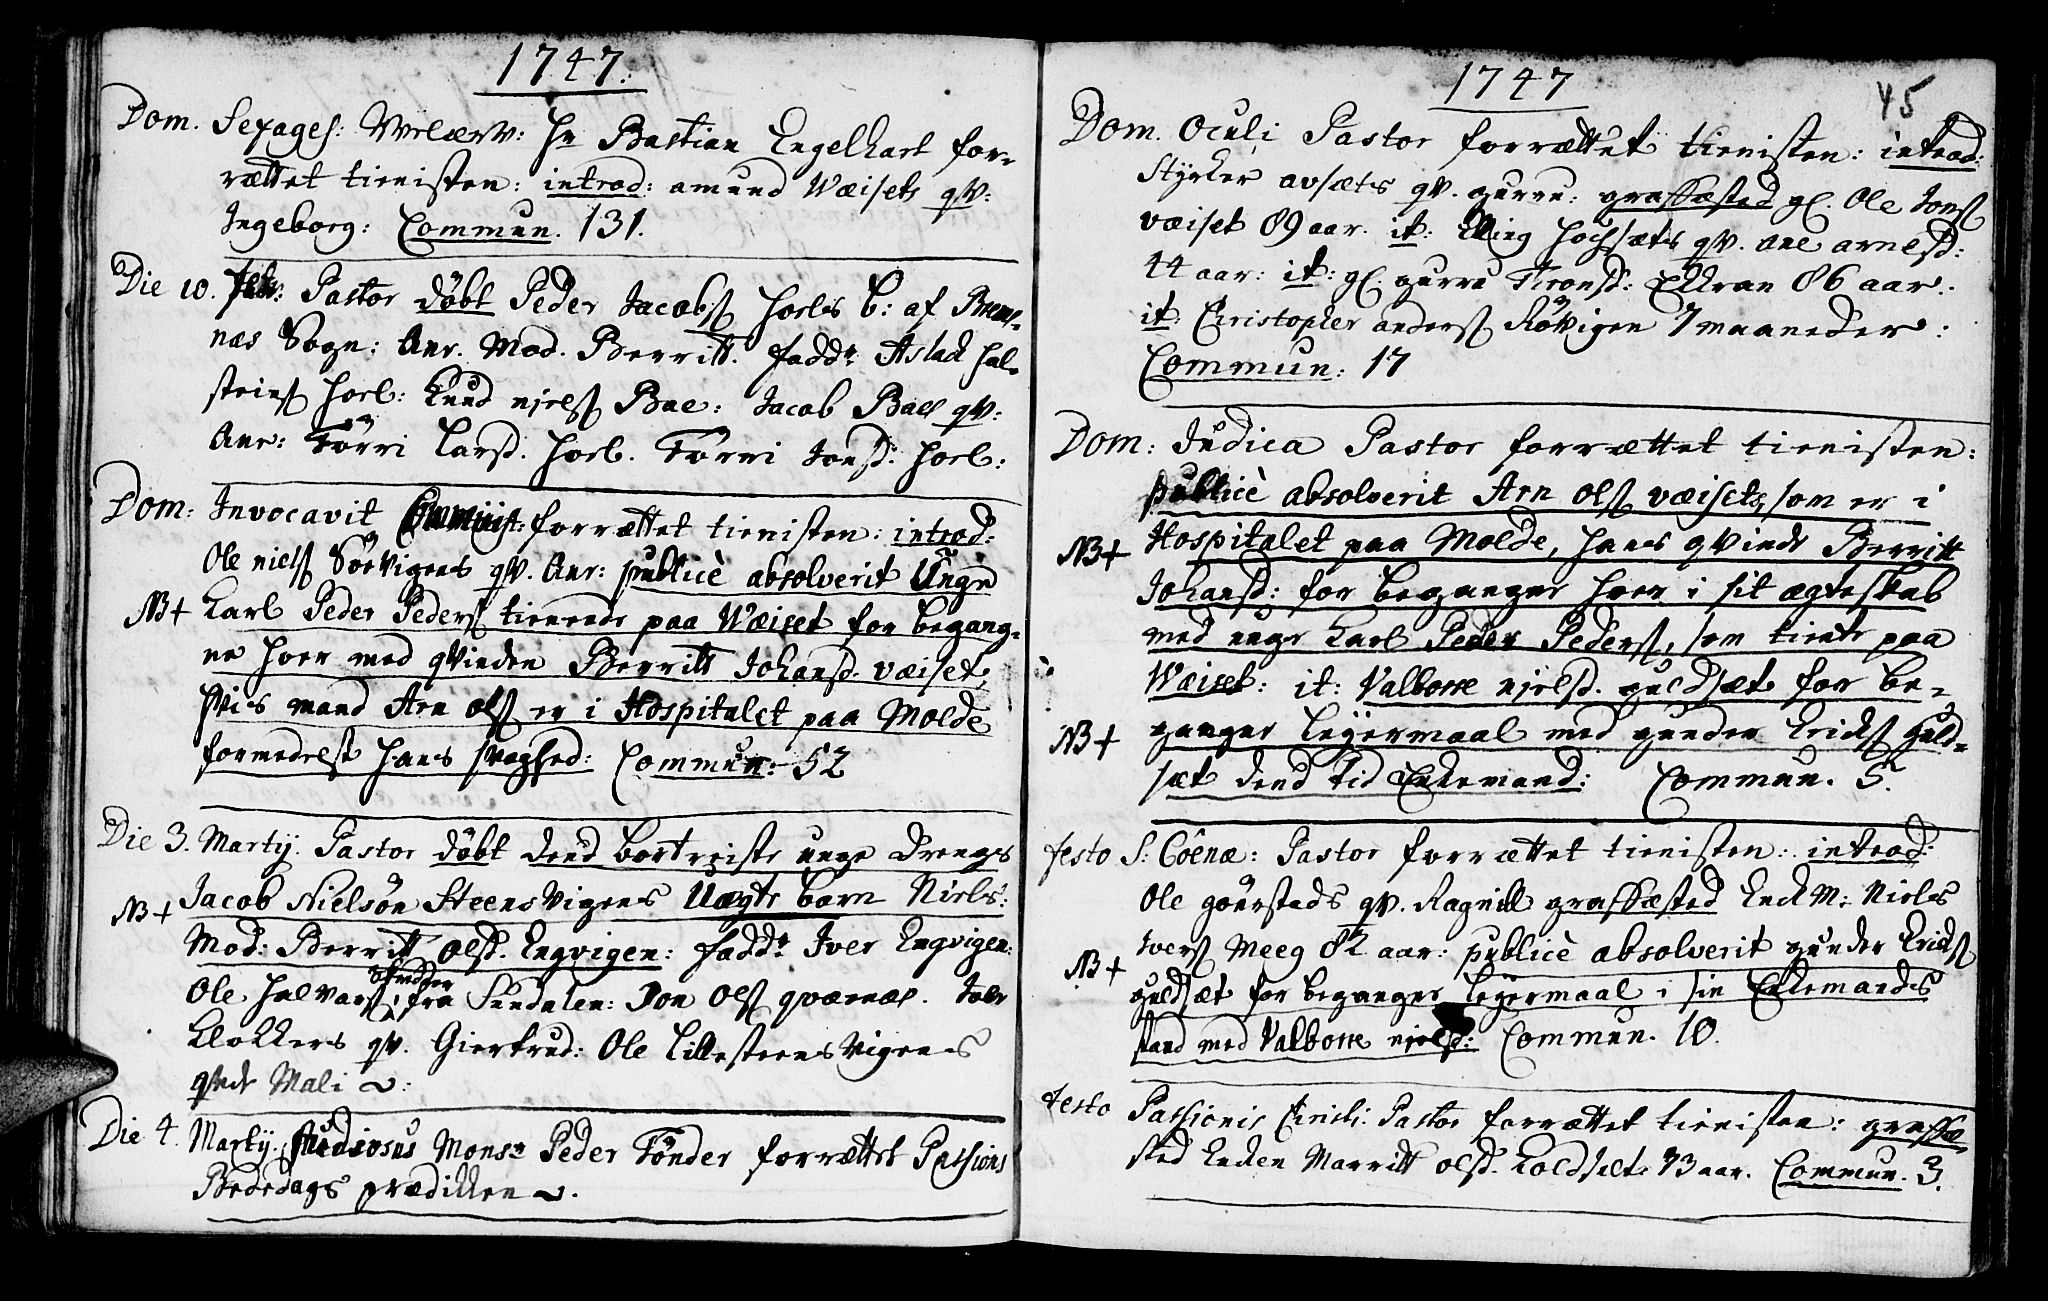 1747.
Dom. Sexages: Velærv: Hr Bastian Engelhart for-
rættet tienisten: introd: amund Wæisets qv:
Ingeborg: Commun. 131.
Die 10. Febr: Pastor döbt Peder Jacobs Hoels b: af Brems-
næs Sogn: Anr. Mod. Berritt. fadd: Aslach Hal-
steins Hoel: Knud njels Bae: Jacob Baes qv:
Anr: Törri Larsd. Hoel. Törri Jonsd: Hoel:
Dom: Invocavit Comminist: forrættet tienisten: introd:
Ole niels Sörvigens qv. Anr: publicè absolverit Unge
NB+ Karl Peder Peders tienende paa Wæiset for begang-
ne Hoer med qvinden Berritt Johansd. væiset,
hvis mand Arn ols er i Hospitalet paa Molde
formedelst hans svaghed: Commun: 52
Die 3. Martij. Pastor döbt dend bortreiste unge drengs
NB+ Jacob Nielsön Steensvigens Uægte barn Niels:
Mod: Berritt olsd. Engvigen: fadd: Iver Engvigen:
Ole Halvars, fra Sundalen: Jon Ols qværnæs. Joen
Klokkers qv. Giertrud: Ole Lillesteensvigens
qvde Mali
Die 4. Martij. Studiosus Monsr Peder Tönder forrættet Passions
Bededags prædikken.
1747
45
Dom. Oculi Pastor forrættet tienisten: introd:
Styrker avsæts qv. gurru: graffæsted gl. Ole Jons
væiset 89 aar. it: Elling Hochsæts qv. Ane arnesd:
44 aar: it: gl. gurru Tronsd: Eckran 86 aar:
it: Christopher anders Rövigen 7 maaneder:
Commun: 17
Dom: Judica Pastor forrættet tienisten:
publicè absolverit Arn ols væisets, som er i
NB+ Hospitalet paa Molde, hans qvinde Berritt
Johansd: for begangne hoer i sit ægteskab
med unge Karl Peder Peders, som tiente paa
Wæiset: it: Valborre njelsd. guldsæt for be-
NB+ gangne Leyermaal med gunder Ericks guld-
sæt dend tid Enkemand: Commun. 5.
festo S: Coenæ: Pastor forrættet tienisten: introd:
Ole göurstads qv. Ragnill graffæsted Enck M: Niels
Ivers Meeg 82 aar: publicè absolverit gunder Ericks
NB+ guldsæt for begangne Leyermaal i sin Enkemands
stand med Valborre njelsd: Commun. 10.
festo Passionis Christi: Pastor forrættet tienisten: graffæ-
sted Enken Marritt olsd. Koldsæt 73 aar. Commun. 3.